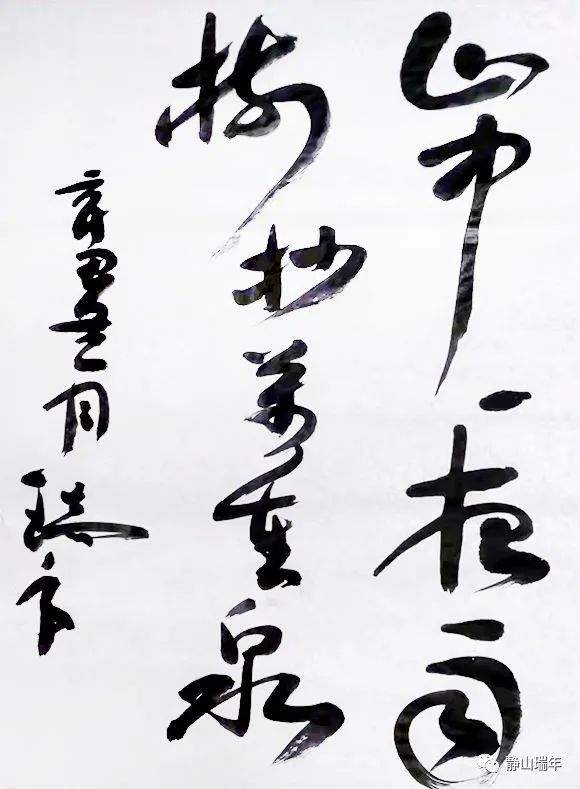 山中一夜雨
樹杪萬重泉
辛丑月瑞年
静山瑞年